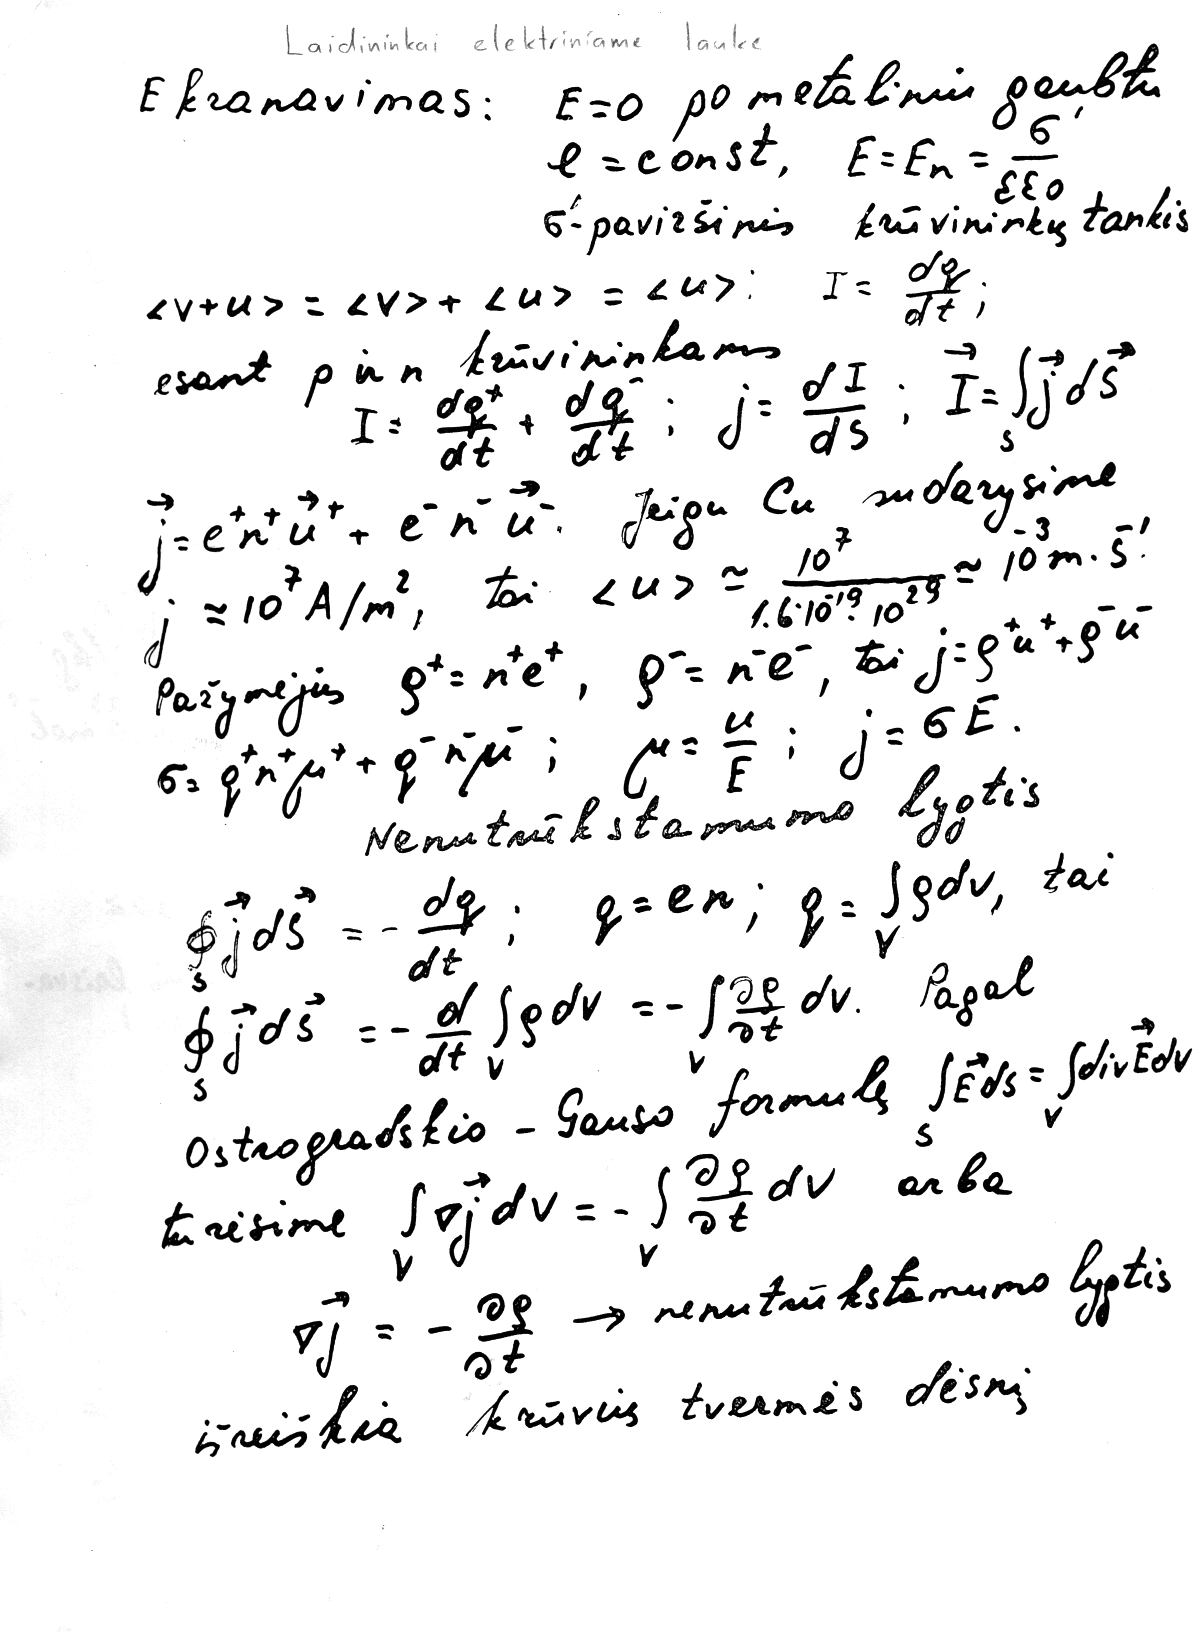 Laidininkai elektriniame lauke
Ekranavimas: E=0 po metaliniu gaubtu
φ = const, E = Eₙ = σ'/εε₀
σ'-paviršinis krūvininkų tankis
<v+u> = <v> + <u> = <u>: I = dq/dt;
esant p ir n krūvininkams
I = dq⁺/dt + dq⁻/dt; j = dI/dS; I⃗ = ∫ₛ j⃗ dS⃗
j⃗ = e⁺n⁺u⃗⁺ + e⁻n⁻u⃗⁻. Jeigu Cu sudarysime
j ≈ 10⁷ A/m², tai <u> ≈ 10⁷/1.6·10⁻¹⁹·10²⁹ ≈ 10⁻³ m·s⁻¹.
Pažymėjus ρ⁺ = n⁺e⁺, ρ⁻ = n⁻e⁻, tai j = ρ⁺u⁺ + ρ⁻u⁻
σ = q⁺n⁺μ⁺ + q⁻n⁻μ⁻; μ = u/E; j = σE.
Nenutrūkstamumo lygtis
∮ₛ j⃗ dS⃗ = - dq/dt; q = en; q = ∫ᵥ ρdv, tai
∮ₛ j⃗ dS⃗ = - d/dt ∫ᵥ ρdv = - ∫ᵥ ∂ρ/∂t dv. Pagal
Ostrogradskio - Gauso formulę ∫ₛ E⃗ds = ∫ᵥ div E⃗dv
turėsime ∫ᵥ ∇j⃗ dv = - ∫ᵥ ∂ρ/∂t dv arba
∇j⃗ = - ∂ρ/∂t → nenutrūkstamumo lygtis
išreiškia krūvių tvermės dėsnį